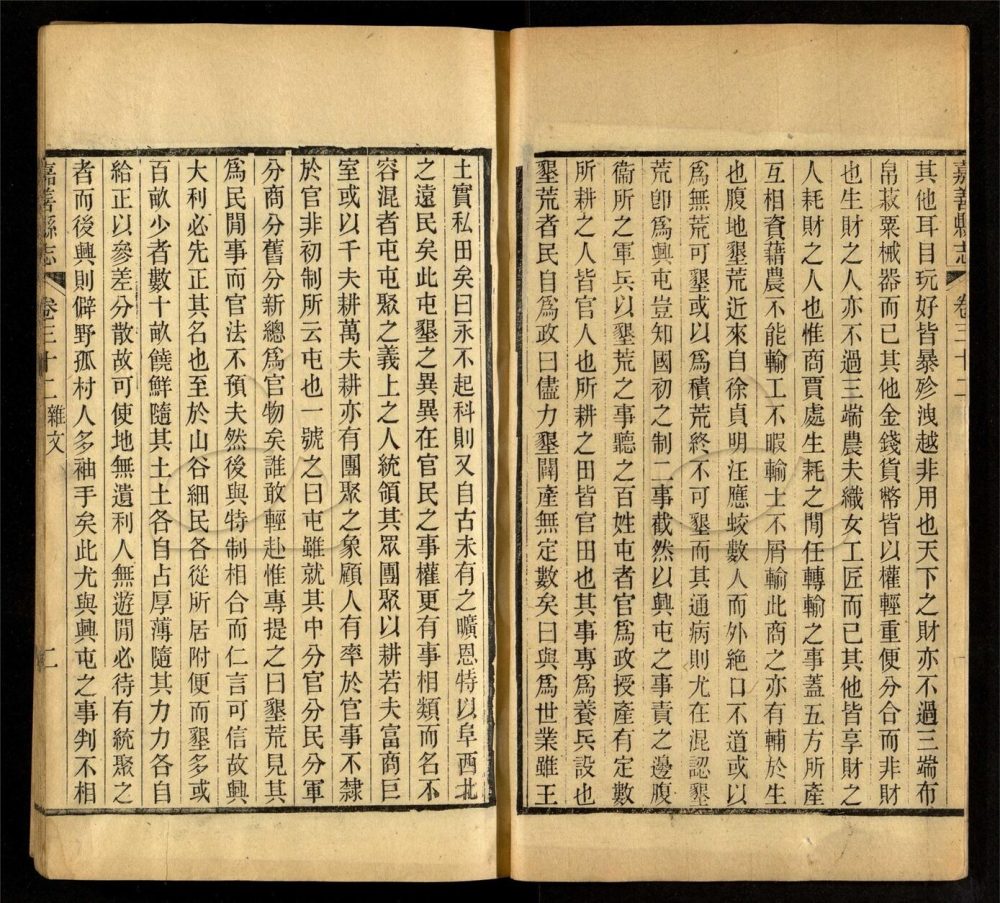 嘉善縣志 卷三十二
其他耳目玩好皆暴殄洩越非用也天下之財亦不過三端布
帛菽粟械器而已其他金錢貨幣皆以權輕重便分合而非財
也生財之人亦不過三端農夫織女工匠而已其他皆享財之
人耗財之人也惟商賈處生耗之閒任轉輸之事蓋五方所產
互相資藉農不能輸工不暇輸士不屑輸此商之亦有輔於生
也腹地墾荒近來自徐貞明汪應蛟數人而外絕口不道或以
爲無荒可墾或以爲積荒終不可墾而其通病則尤在混認墾
荒卽爲興屯豈知國初之制二事截然以興屯之事責之邊腹
衞所之軍兵以墾荒之事聽之百姓屯者官爲政授產有定數
所耕之人皆官人也所耕之田皆官田也其事專爲養兵設也
墾荒者民自爲政曰儘力墾闢產無定數矣曰與爲世業雖王
土實私田矣曰永不起科則又自古未有之曠恩特以阜西北
之遠民矣此屯墾之異異在官民之事權更有事相類而名不
容混者屯屯聚之義上之人統領其眾團聚以耕若夫富商巨
室或以千夫耕萬夫耕亦有團聚之象顧人有率於官事不隸
於官非初制所云屯也一號之曰屯雖就其中分官分民分軍
分商分舊分新總爲官物矣誰敢輕赴惟專提之曰墾荒見其
爲民閒事而官法不預夫然後與特制相合而仁言可信故興
大利必先正其名也至於山谷細民各從所居附便而墾多或
百畝少者數十畝饒鮮隨其土土各自占厚薄隨其力力各自
給正以參差分散故可使地無遺利人無遊閒必待有統聚之
者而後興則僻野孤村人多袖手矣此尤與興屯之事判不相
嘉善縣志 卷三十二 雜文 二